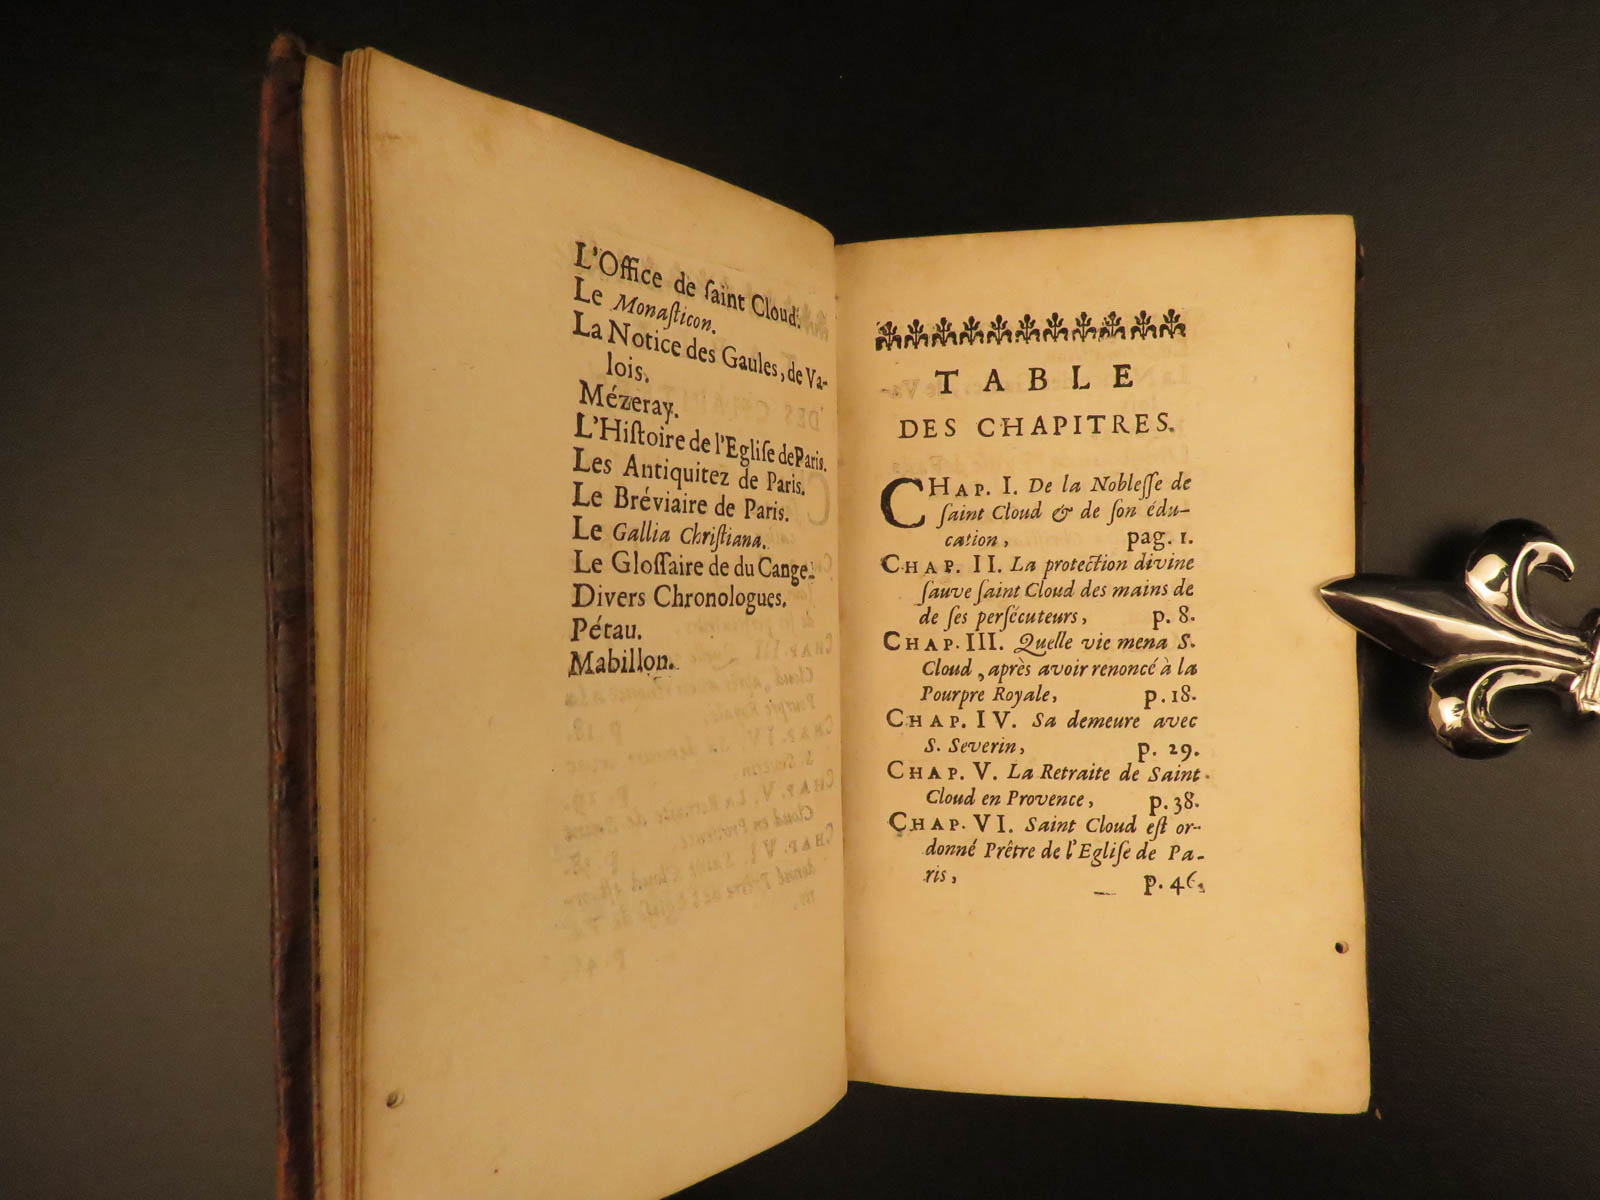 L'Office de ſaint Cloud.
Le Monaſticon.
La Notice des Gaules, de Va-
lois.
Mézeray.
L'Hiſtoire de l'Egliſe de Paris.
Les Antiquitez de Paris.
Le Bréviaire de Paris.
Le Gallia Chriſtiana.
Le Gloſſaire de du Cange.
Divers Chronologues.
Pétau.
Mabillon.
TABLE
DES CHAPITRES.
CHAP. I. De la Nobleſſe de
ſaint Cloud & de ſon édu-
cation, pag. 1.
CHAP. II. La protection divine
ſauve ſaint Cloud des mains de
de ſes perſécuteurs, p. 8.
CHAP. III. Quelle vie mena S.
Cloud, après avoir renoncé à la
Pourpre Royale, p. 18.
CHAP. IV. Sa demeure avec
S. Severin, p. 29.
CHAP. V. La Retraite de Saint
Cloud en Provence, p. 38.
CHAP. VI. Saint Cloud eſt or-
donné Prêtre de l'Egliſe de Pa-
ris, p. 46.